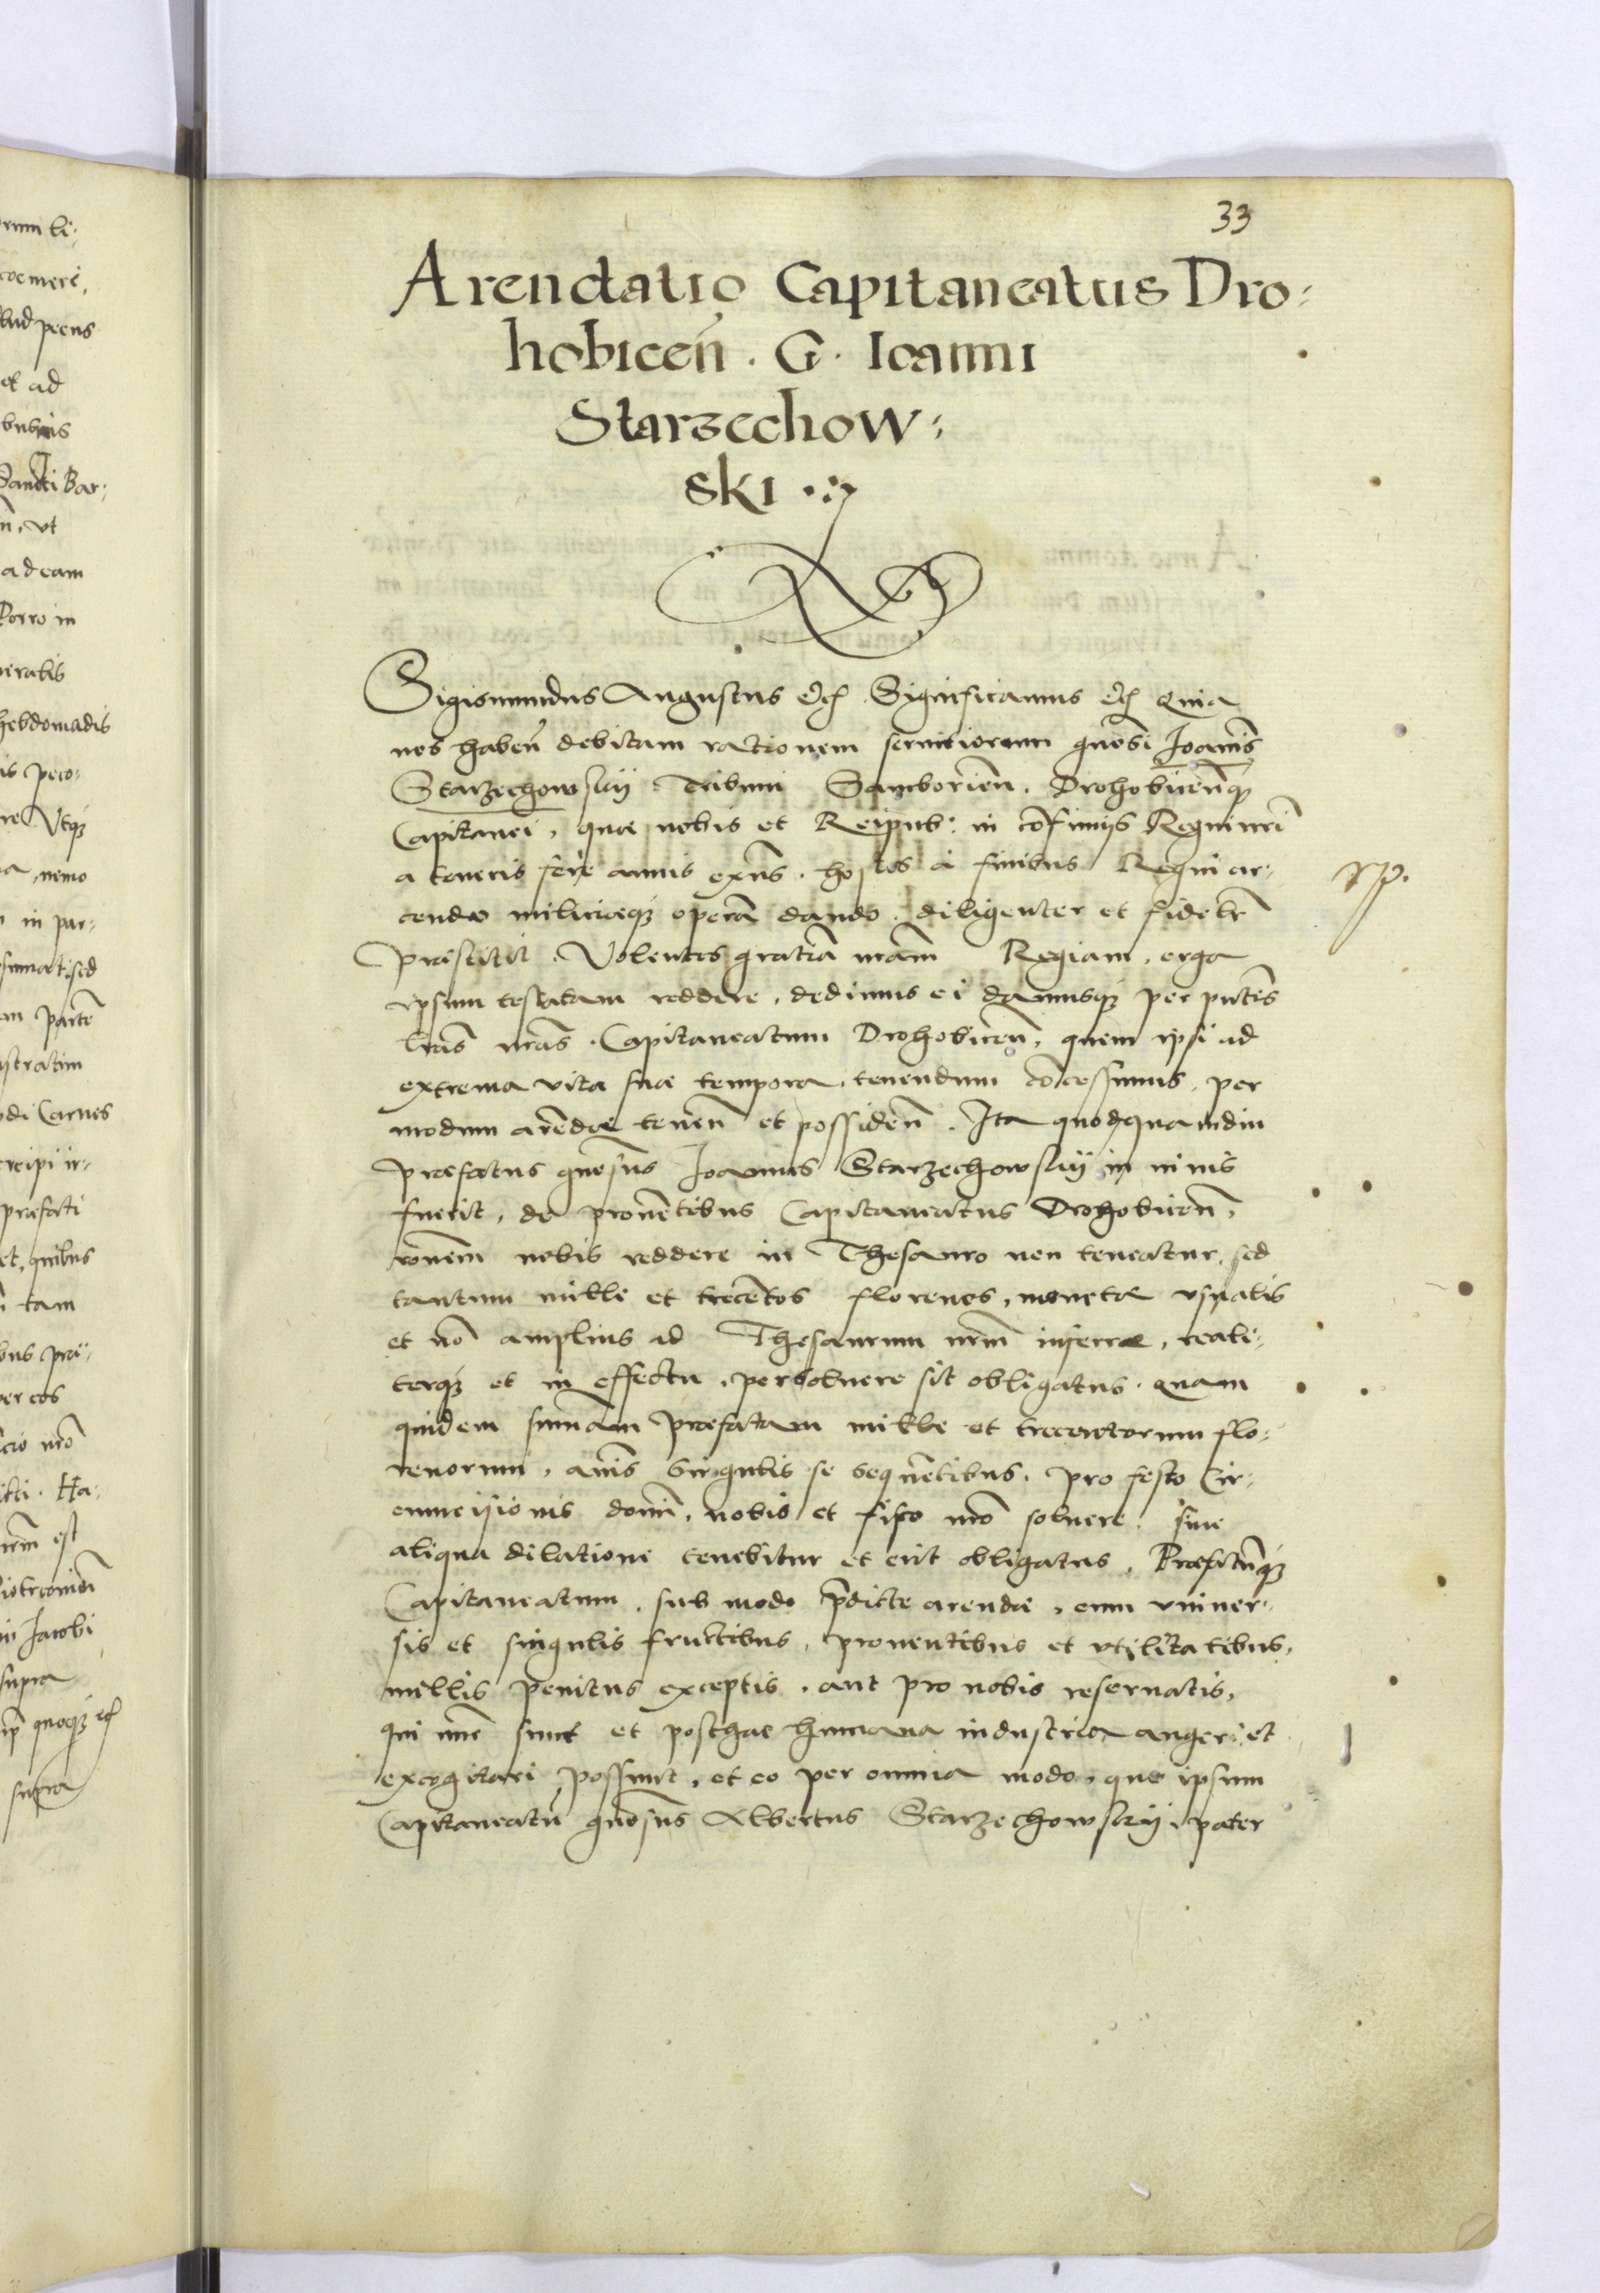 33
Arendatio Capitaneatus Dro:
hobiceñ. G. Ioanni
Starzechow:
ski
Sigismundus Augustus etc. Significamus etc. Quia
nos habeñ debitam rationem seruitiorum gnosi Joañis
Starzechowskij Tribuni Samborieñ. Drohobiceñq3
Capitanei, quae nobis et Reipub: in cõfinijs Regni nri
a teneris fere annis exñs. hostes à finibus Regni ar-
cendo militiaeq3 operã dando. diligenter et fidelr
praestitit. Volentes gratiã nram Regiam, erga
ipsum testatam reddere, dedimus ei damusq3 per pñtes
lras nras. Capitaneatum Drohobiceñ, quem ipsi ad
extrema vita suae tempora, tenendum cõcessimus, per
modum arẽdae teneñ et possideñ. Ita quod quamdiu
praefatus gnosus Joannes Starzechowskij in viuis
fuerit, de prouẽtibus Capitaneatus Drohobiceñ,
rõnem nobis reddere in Thesauro non teneatur, sed
tantum mille et trecẽtos florenos, monetae vsualis
et nõ amplius ad Thesaurum nrm inferre, reali-
terq3 et in effectu, persoluere sit obligatus. quam
quidem sum̃am praefatam mille et trecentorum flo-
renorum, añis singulis se sequẽtibus, pro festo Cir-
cumcisionis domĩ, nobis et fisco nrõ soluere, sine
aliqua dilatione tenebitur et erit obligatus. Praefatũq3
Capitaneatum, sub modo p̃dicte arendae, cum vniuer-
sis et singulis fructibus, prouentibus et vtilitatibus,
nullis penitus exceptis, aut pro nobis reseruatis,
qui nũc sunt et posthac humana industria augeri et
excogitari possunt, et eo per omnia modo, quo ipsum
Capitaneatũ gnosus Albertus Starzechowskij, pater